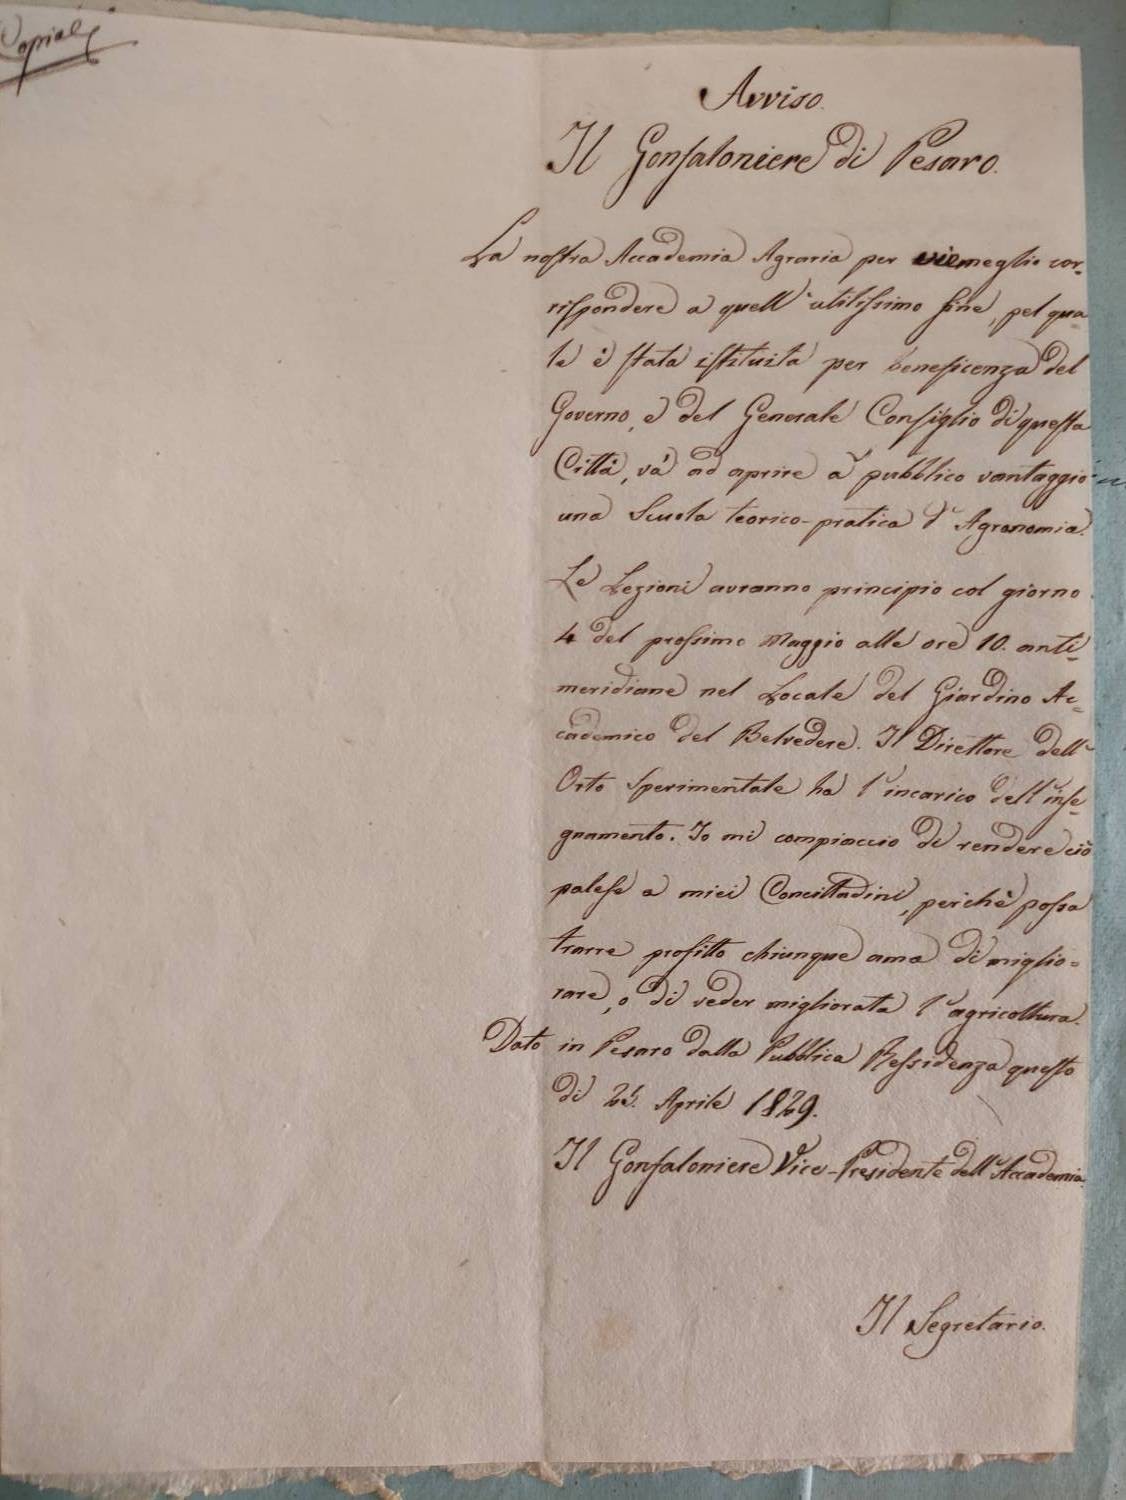 Copia
Avviso.
Il Gonfaloniere di Pesaro.
La nostra Accademia Agraria per viemeglio cor-
rispondere a quell'utilissimo fine, pel qua-
le è stata istituita per beneficenza del
Governo, e del Generale Consiglio di questa
Città, và ad aprire à pubblico vantaggio
una Scuola teorico-pratica d'Agronomia.
Le Lezioni avranno principio col giorno
4 del prossimo Maggio alle ore 10. anti-
meridiane nel Locale del Giardino Ac-
cademico del Belvedere. Il Direttore dell'
Orto Sperimentale ha l'incarico dell'inse-
gnamento. Io mi compiaccio di rendere ciò
palese a miei Concittadini, perchè possa
trarre profitto chiunque ama di miglio-
rare, o di veder migliorata l'agricoltura.
Dato in Pesaro dalla Pubblica Ressidenza questo
dì Aprile 1829.
Il Gonfaloniere Vice-Presidente dell'Accademia.
Il Segretario.